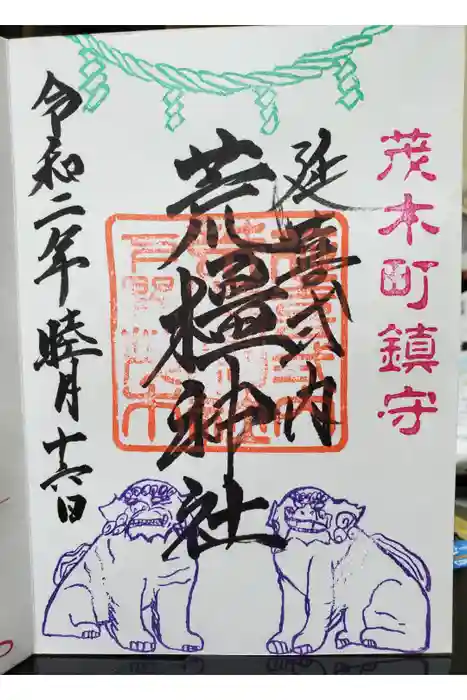 茂木町鎮守
延喜式内
荒橿神社
令和二年睦月十六日